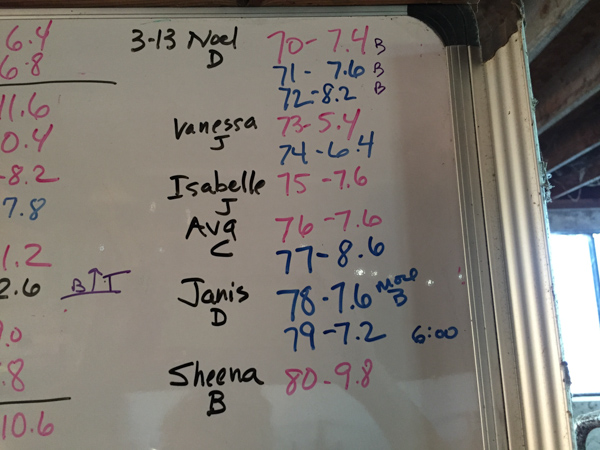 6.4
6.8
11.6
0.4
-8.2
7.8
1.2
2.6 B↑I
9.0
.8
10.6
3-13 Noel 70-7.4 B
D 71-7.6 B
72-8.2 B
Vanessa 73-5.4
J 74-6.4
Isabelle 75-7.6
J
Ava 76-7.6
C 77-8.6
Janis 78-7.6
D 79-7.2 6:00
B
Sheena 80-9.8
B